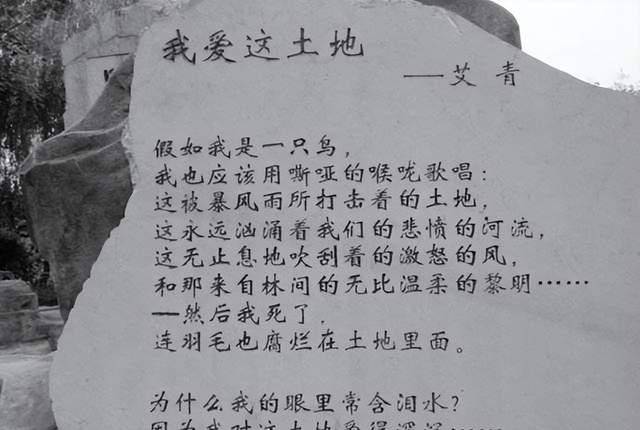 我爱这土地
—艾青
假如我是一只鸟，
我也应该用嘶哑的喉咙歌唱：
这被暴风雨所打击着的土地，
这永远汹涌着我们的悲愤的河流，
这无止息地吹刮着的激怒的风，
和那来自林间的无比温柔的黎明……
—然后我死了，
连羽毛也腐烂在土地里面。
为什么我的眼里常含泪水？
因为我对这土地爱得深沉……